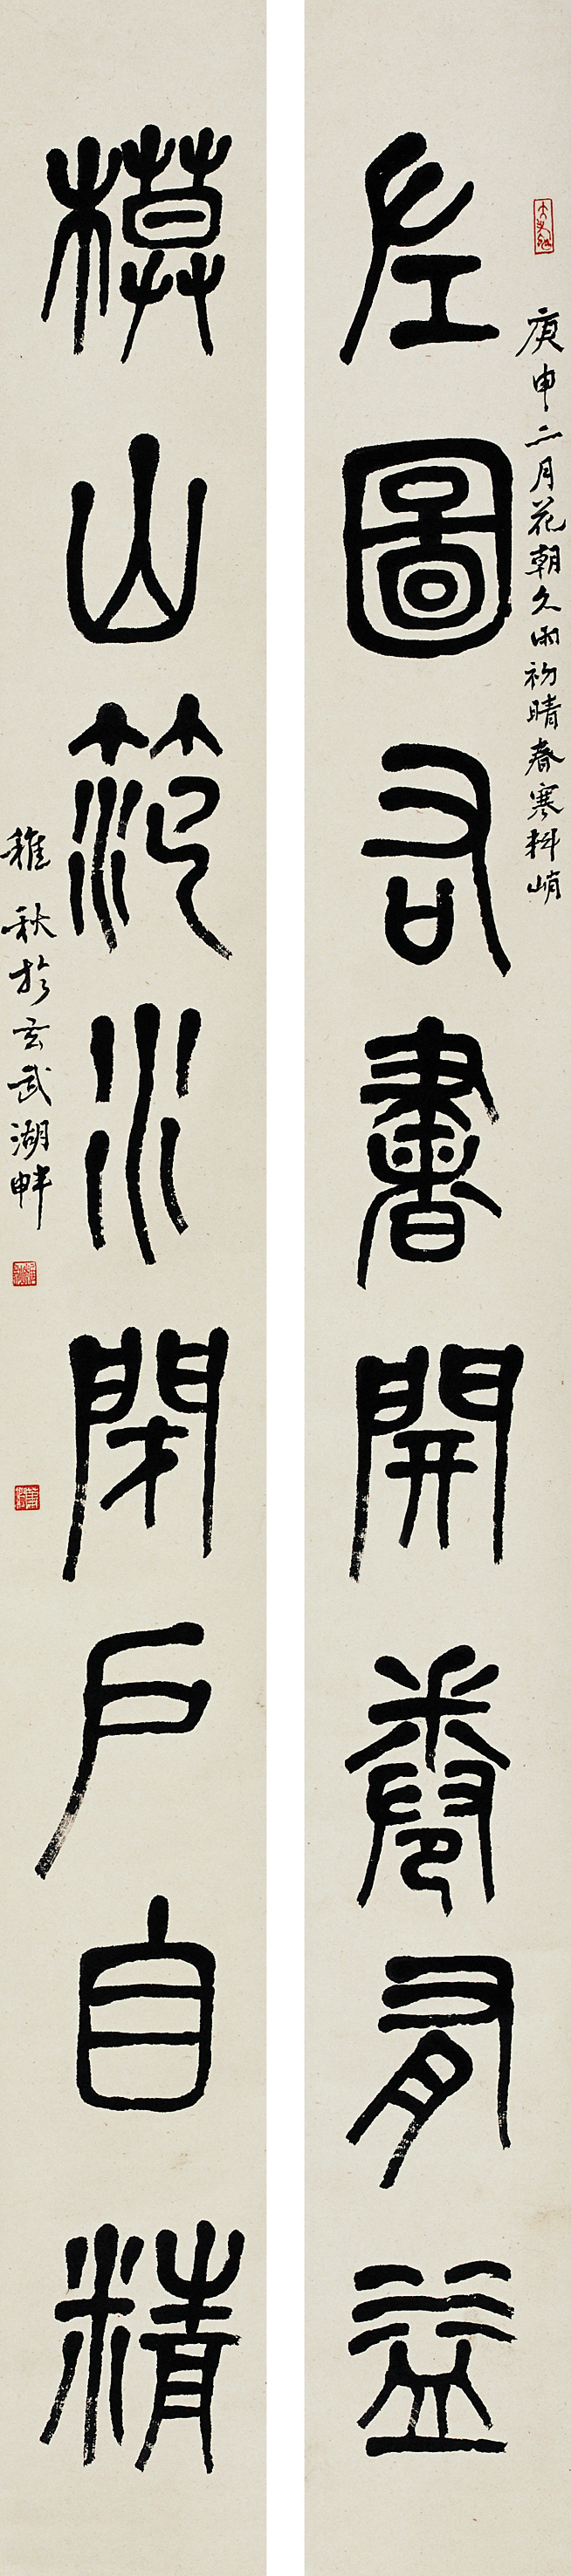 庚申二月花朝久雨初晴春寒料峭
左圖右書開卷有益
模山笵水閉戶自精
稚秋於玄武湖畔